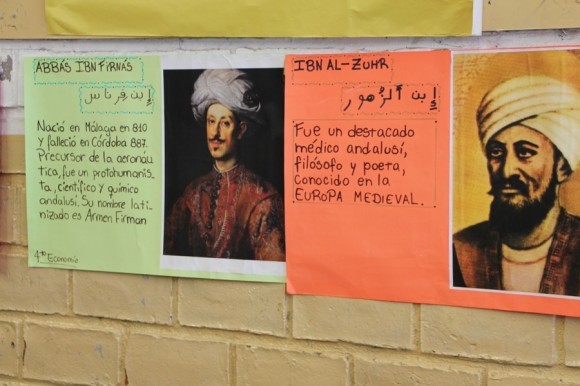 ABBÁS IBN FIRNÁS
إبن فرناس
Nació en Málaga en 810
y falleció en Córdoba 887.
Precursor de la aeronáu
tica, fue un protohumanis
ta, científico y químico
andalusí. Su nombre lati-
nizado es Armen Firman
4º Economía
IBN AL-ZUHR
إبن ألزهور
Fue un destacado
médico andalusí,
filósofo y poeta,
conocido en la
EUROPA MEDIEVAL.